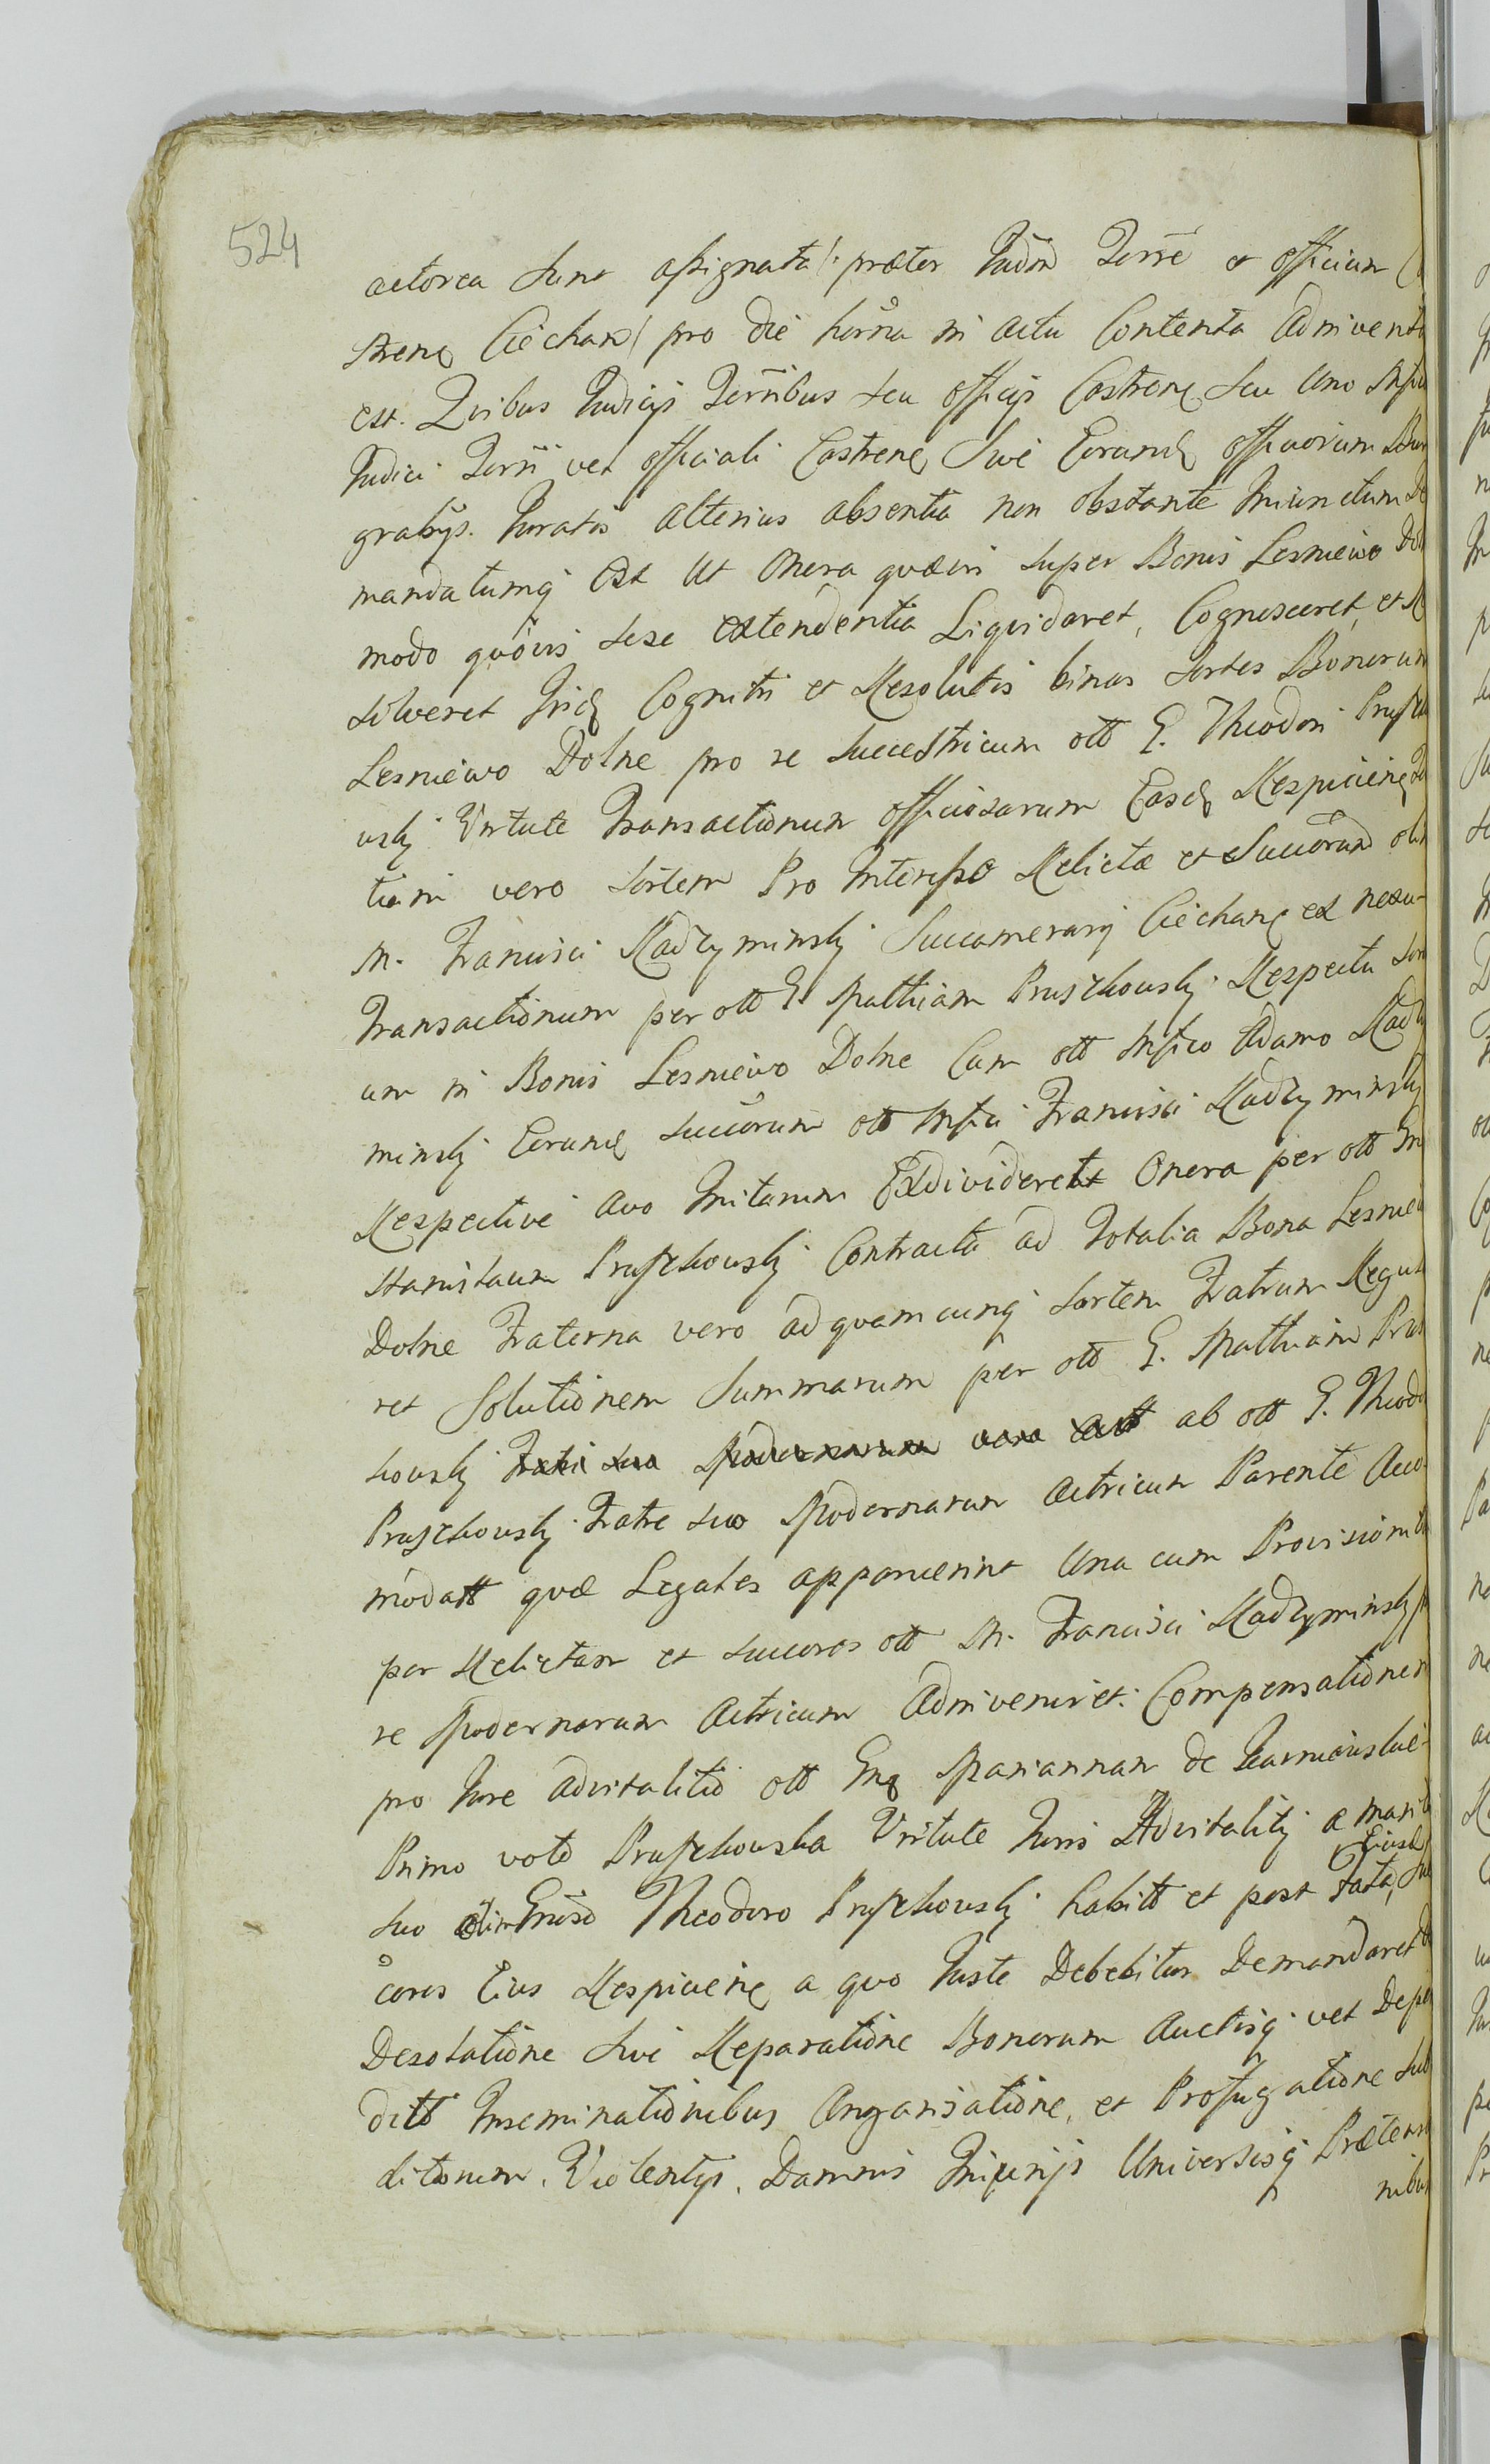 524
actorea sunt assignata /: præter Judm Terrē et officium
strenȩ Ciechan / pro die horna in actu Contenta adinventa
est. Quibus Judicijs Terribus seu officijs Castrenȩ seu Uno
Judici Terri vel officiali Castrenȩ Sive Eorund officiorum
grabijs. Juratis alterius absentia non obstante Iniunctum De
mandatumq est Ut Onera quævis super Bonis Lesniewo Dol
modo quovis sese extendentia Liquidaret, Cognosceret, et Re
solveret Iisd Cognitis et Resolutis binas sortes Bonorum
Lesniewo Dolne pro se succestricum ott G. Theodori Pruszko
wskj Virtute Transactionum officiosarum Easd Respicienȩ
tiam vero sortem Pro Interesse Relictæ et Succorum olim
M. Francisci Radzyminskj Succamerarij Ciechanȩ ex nexu
Transactionum per ott G. Mathiam Pruszkowskj Respectu
um in Bonis Lesniewo Dolne Cum ott Mfico Adamo Radzy
minskj Eorumȩ succorum ott Mfici Francisci Radzyminskj
Respective avo Initarum Exdivideret Onera per ott
Stanislaum Pruszkowskj Contracta ad Totalia Bona Lesniew
Dolne Fraterna vero ad quamcunq sortem Fratrum
ret Solutionem Summarum per ott G. Mathiam Prus
kowskj Fratri suo Modernarum vero ab ott G. Theodo
Pruszkowskj Fratre suo Modernarum actricum Parente Acco
modatt quæ Legales apparuerint Una cum Provisionib
per Relictam et succores ott M. Francisci Radzyminskj
re Modernarum Actricum Adinvenirēt. Compensationem
pro Jure advitalitio ott Gnȩ Mariannam de
Primo voto Pruszkowska Virtute Juris Advitalitij a marito
suo olim Gnoso Theodoro Pruszkowskj habitt et post Fata, Eiusd
cores Eius Respicienȩ a quo Juste Debebitur Demandaret
Desolatione Sive Reparatione Bonorum Auctisq vel Deper
ditt Inseminationibus Angarisatione, et Profugatione Sub
ditorum. Violentijs. Damnis Iniurijs Universisq Prætensio
nibus